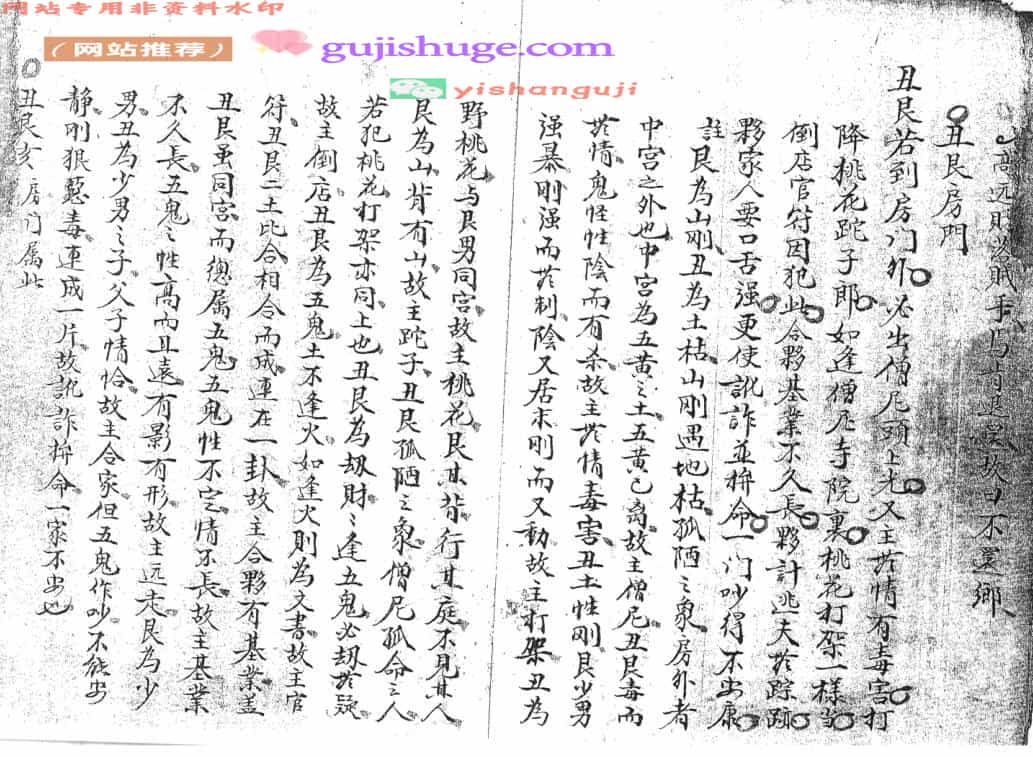 网站专用非资料水印
（网站推荐）
gujishuge.com
yishanguji
高远財落賊手 坎日不還鄉
丑艮房門
丑艮若到房门外必出僧尼頭上光又主无情有毒害打
降桃花跎子郎如逢僧尼寺院裏桃花打架一樣当
倒店官符因犯此合夥基業不久長夥計逃夫无踪跡
夥家人要口舌强更使訛詐並拚命一门吵得不安康
註艮為山剛丑為土枯山剛遇地枯孤陋之象房外者
中宫之外也中宫為五黄之土五黄已离故主僧尼丑艮毒而
无情鬼性性陰而有杀故主无情毒害丑土性剛艮少男
强暴刚强而无制陰又居末刚而又動故主打架丑為
野桃花与艮男同宫故主桃花艮其背行其庭不見其人
艮為山背有山故主跎子丑艮孤陋之象僧尼孤命之人
若犯桃花打架亦同上也丑艮為刼財之逢五鬼必刼无疑
故主倒店丑艮為五鬼土不逢火如逢火則為文書故主官
符丑艮二土比合相合而成連在一卦故主合夥有基業盖
丑艮虽同宫而總属五鬼五鬼性不定情不長故主基業
不久長五鬼之性高而且遠有影有形故主远走艮為少
男丑為少男之子父子情恰故主合家但五鬼作吵不能安
静刚狠惡毒連成一片故訛詐拚命一家不安也
丑艮亥房门属此